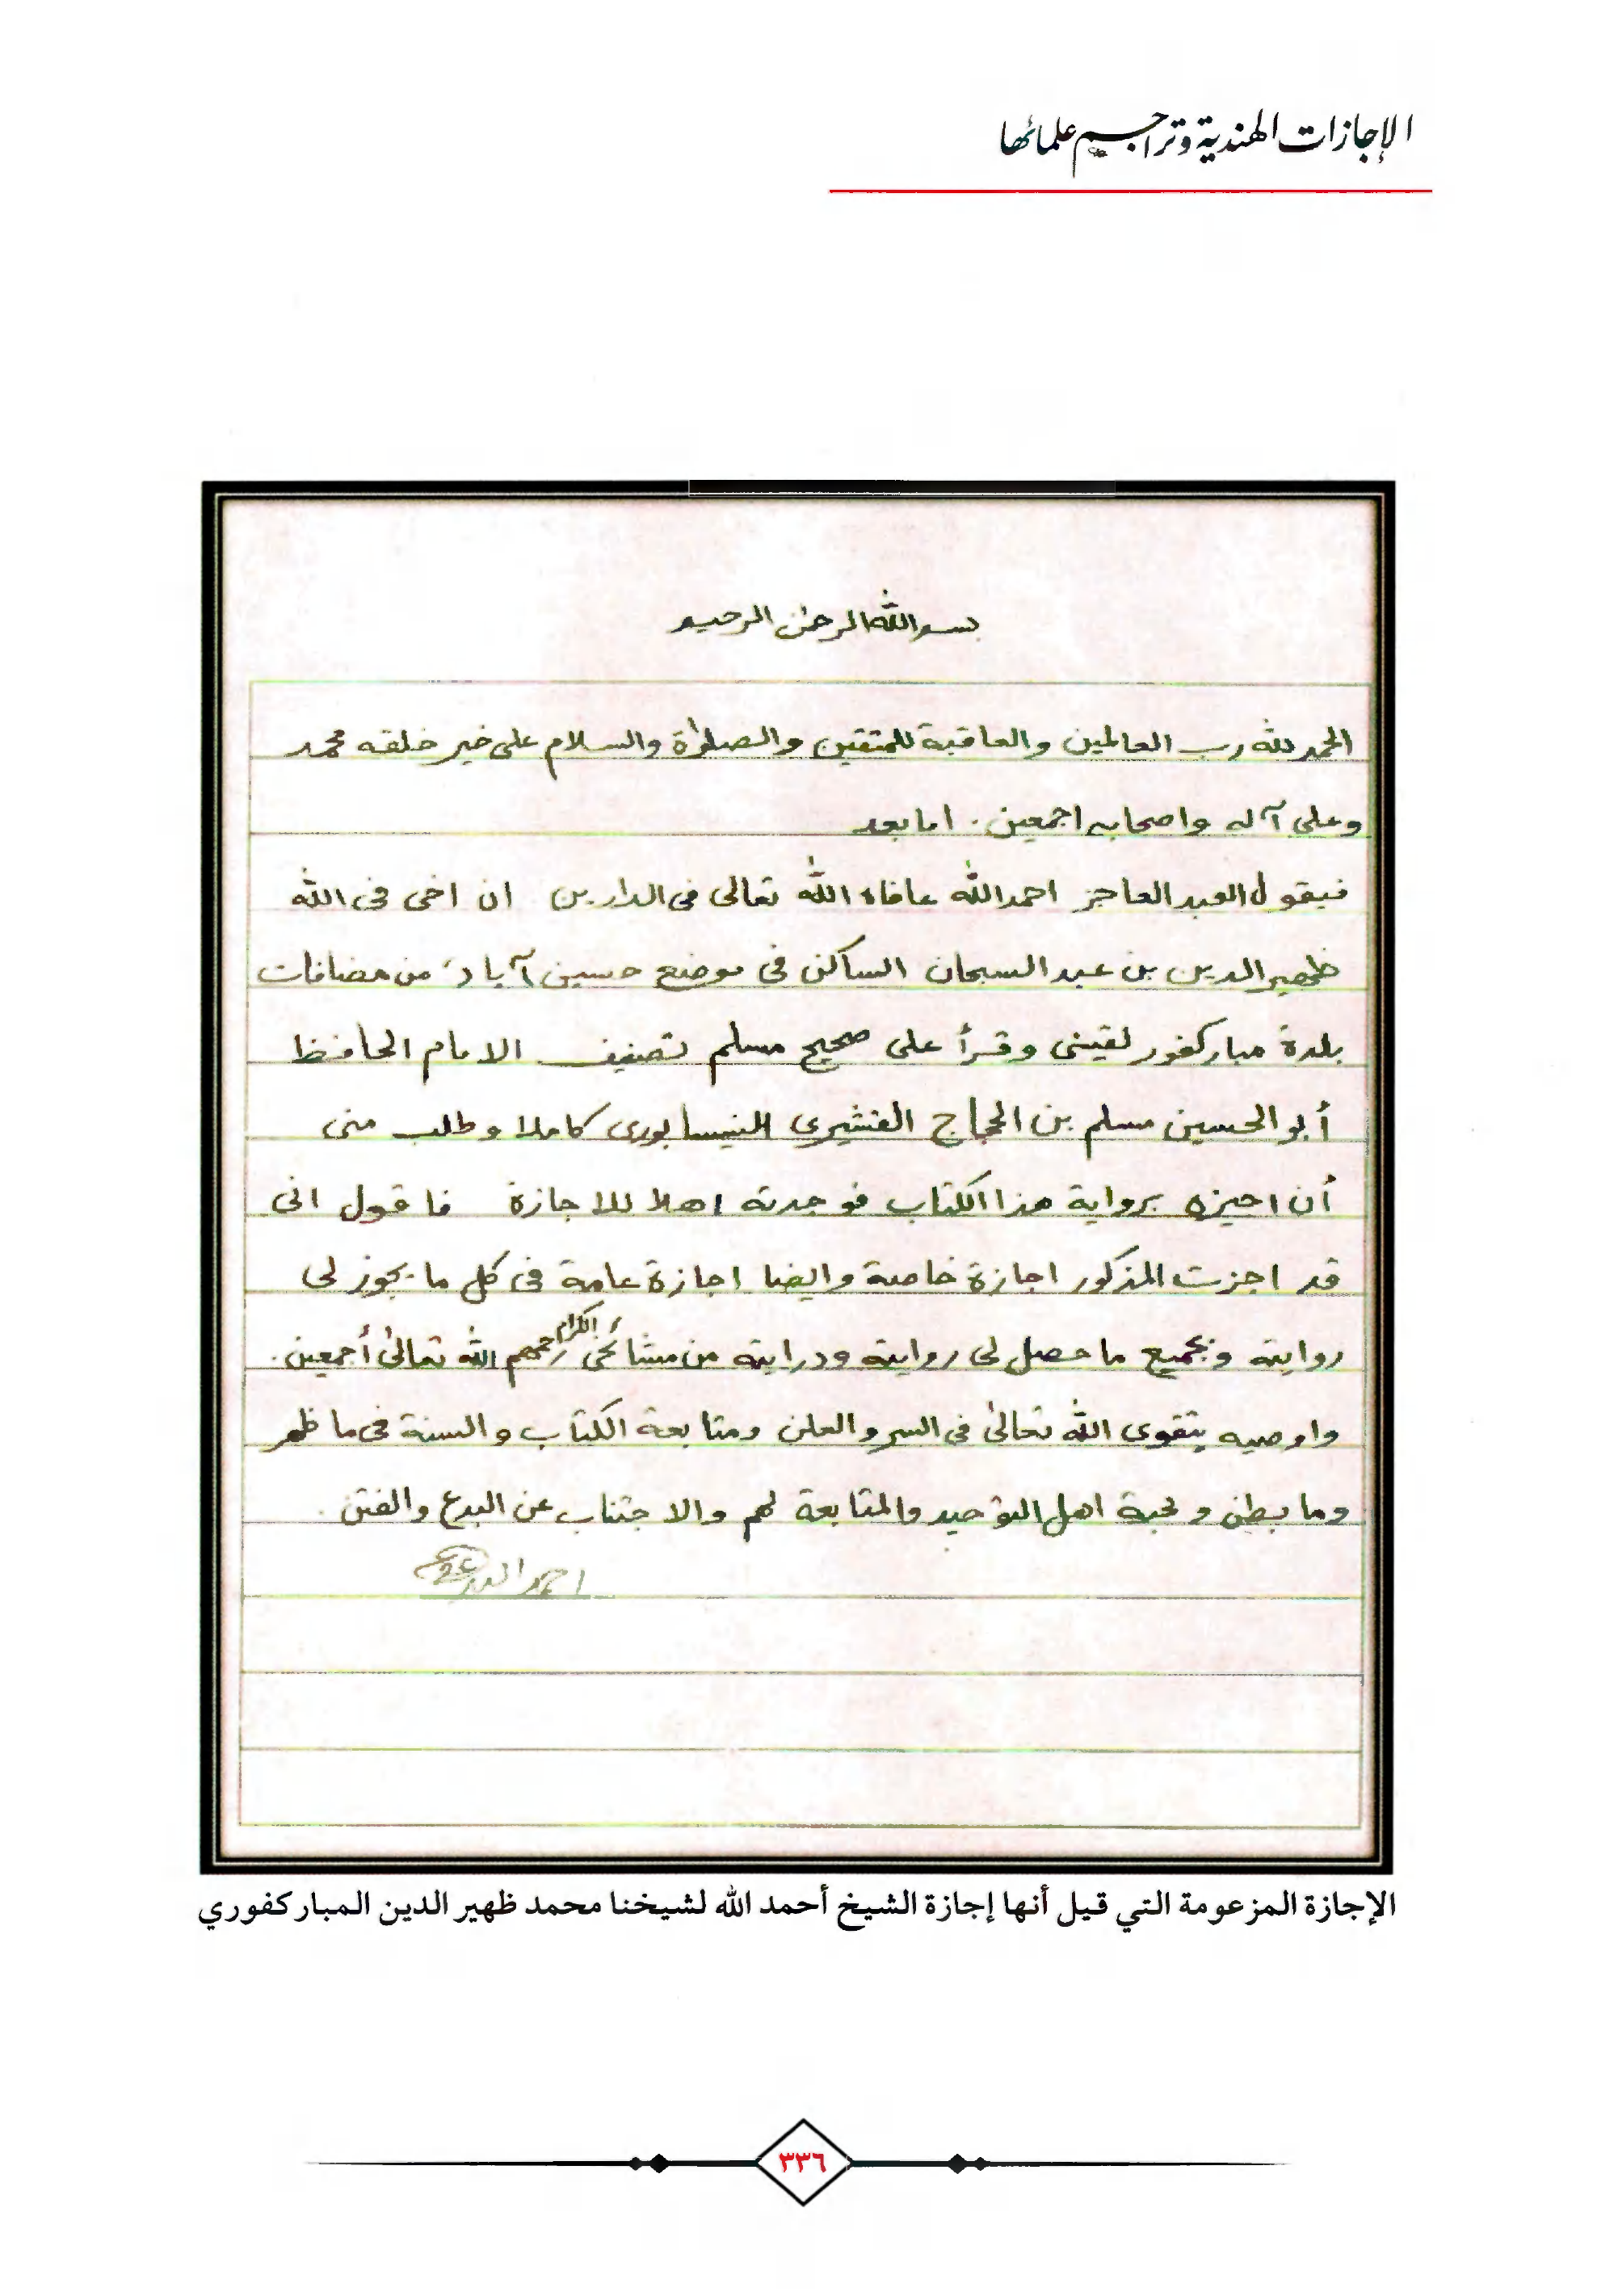 الإجازات الهندية وتراجم علمائها
بسم الله الرحمن الرحيم
الحمد لله رب العالمين والعاقبة للمتقين والصلوٰة والسلام على خير خلقه محمد
وعلى آله واصحابه اجمعين . اما بعد
فيقول العبد العاجز احمد الله عافاه الله تعالى فى الدارين ان اخى فى الله
ظهير الدين بن عبد السبحان الساكن فى موضع حسين آباد، من مضافات
بلدة مباركفور لقينى وقرأ على صحيح مسلم تصنيف الامام الحافظ
أبو الحسين مسلم بن الحجاج القشيرى النيسابورى كاملا وطلب منى
أن اجيزه برواية هذا الكتاب فوجدته اهلا للاجازة فاقول انى
قد اجزت المذكور اجازة خاصة وايضا اجازة عامة فى كل ما يجوز لى
روايته وبجميع ما حصل لى روايته ودرايته من مشائخى الكرام رحمهم الله تعالىٰ أجمعين .
واوصيه بتقوى الله تعالىٰ فى السر والعلن ومتابعة الكتاب والسنة فى ما ظهر
وما بطن ومحبة اهل التوحيد والمتابعة لهم والاجتناب عن البدع والفتن .
احمد الله
الإجازة المزعومة التي قيل أنها إجازة الشيخ أحمد الله لشيخنا محمد ظهير الدين المباركفوري
٣٣٦